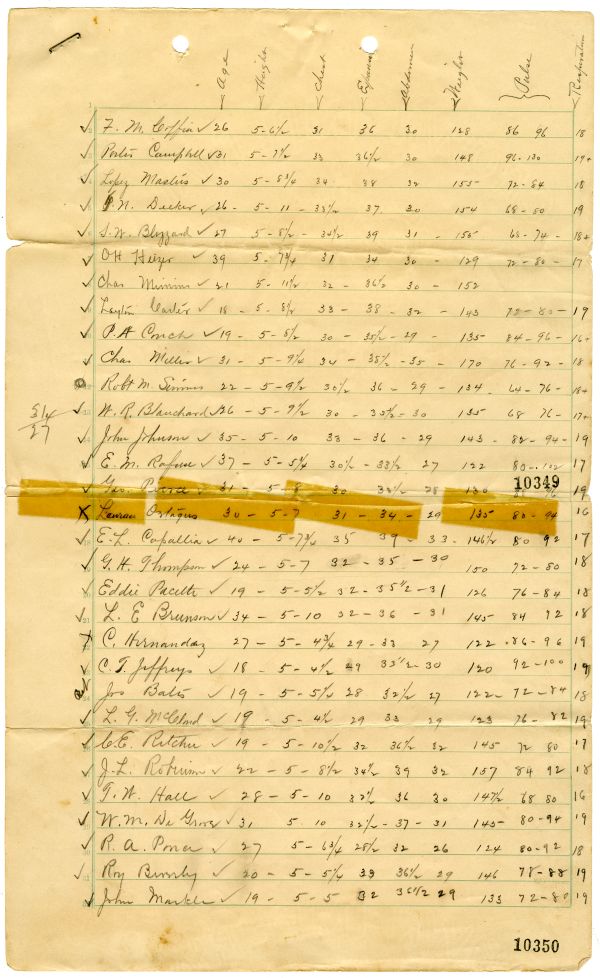 Age Height Chest Expansion Abdomen Weight Pulse Respiration
F. M. Coffin 26 5-6½ 31 36 30 128 86 96 18
Porter Campbell 31 5-7½ 33 36½ 30 148 96-100 17+
Lopez 30 5-8¾ 34 38 32 155 72-84 18
N. Decker 26- 5-11-33½ 37 30 154 68-80 19
S. W. Blizzard 27 5-8½-34½ 39 31-155 68-74-18+
OH Heizer 39 5-7¾ 31 34 30-129 72-80-17
Chas Minnins 21 5-11½ 32-36½ 30-152
Layton Carter 18-5-8½ 33-38-32-143 72-80-19
P. A. Conch 19-5-8½ 30-35½-29-135 84-96-16+
Chas Miller 31-5-9¼ 34-38½-35-170 76-92-18
Robt M. Simms 22-5-9½ 30½-36-29-134 64-76-18+
W. R. Blanchard 26-5-7½-30-33½-30 135 68 76-17+
5/4/27
John Johnson 35-5-10 33-36-29 143-88-94-19
E. M. 37-5-5¼ 30½-33½ 27 122 80-102 17
10349
Geo. Pierce 31-5-8 30 33½-28 130 19
30-5-7 31-34-29 135 80-94 16
E. L. Capallia 40-5-7¾ 35 39-33-146½ 80 92 17
G. H. Thompson 24-5-7 32-35-30 150 72-80 18
Eddie Pacetti 19-5-5½ 32-35½-31 126 76-84 18
L. E Brunson 34-5-10 32-36-31 145 84 92 18
C. Hernandaz 27-5-4¾ 29-33 27 122-86-96 19
C. T. Jeffreys 18-5-4½ 29 33½-30 120 92-100 19
Jos Bates 19-5-5½ 28 32½ 27 122-72-84 18
L. G. McCloud 19-5-4½ 29 33 29 123 76-82 19
C. E. Ritchie 19-5-10½ 32 36½ 32 145 72 80 17
J. L. Robinson 22-5-8½ 34½ 39 32 157 84 92 18
T. W. Hall 28-5-10 32½ 36 30 147½ 68 80 16
W. M. De Grove 31 5 10 32½-37-31 145-80-94 19
R. A. Ponce 27 5-6¾ 28½ 32 26 124 80-92 18
Roy 20-5-5¼ 33 36½ 29 146 78-88 19
John Markle 19-5-5 32 36½ 29 133 72-80 19
10350